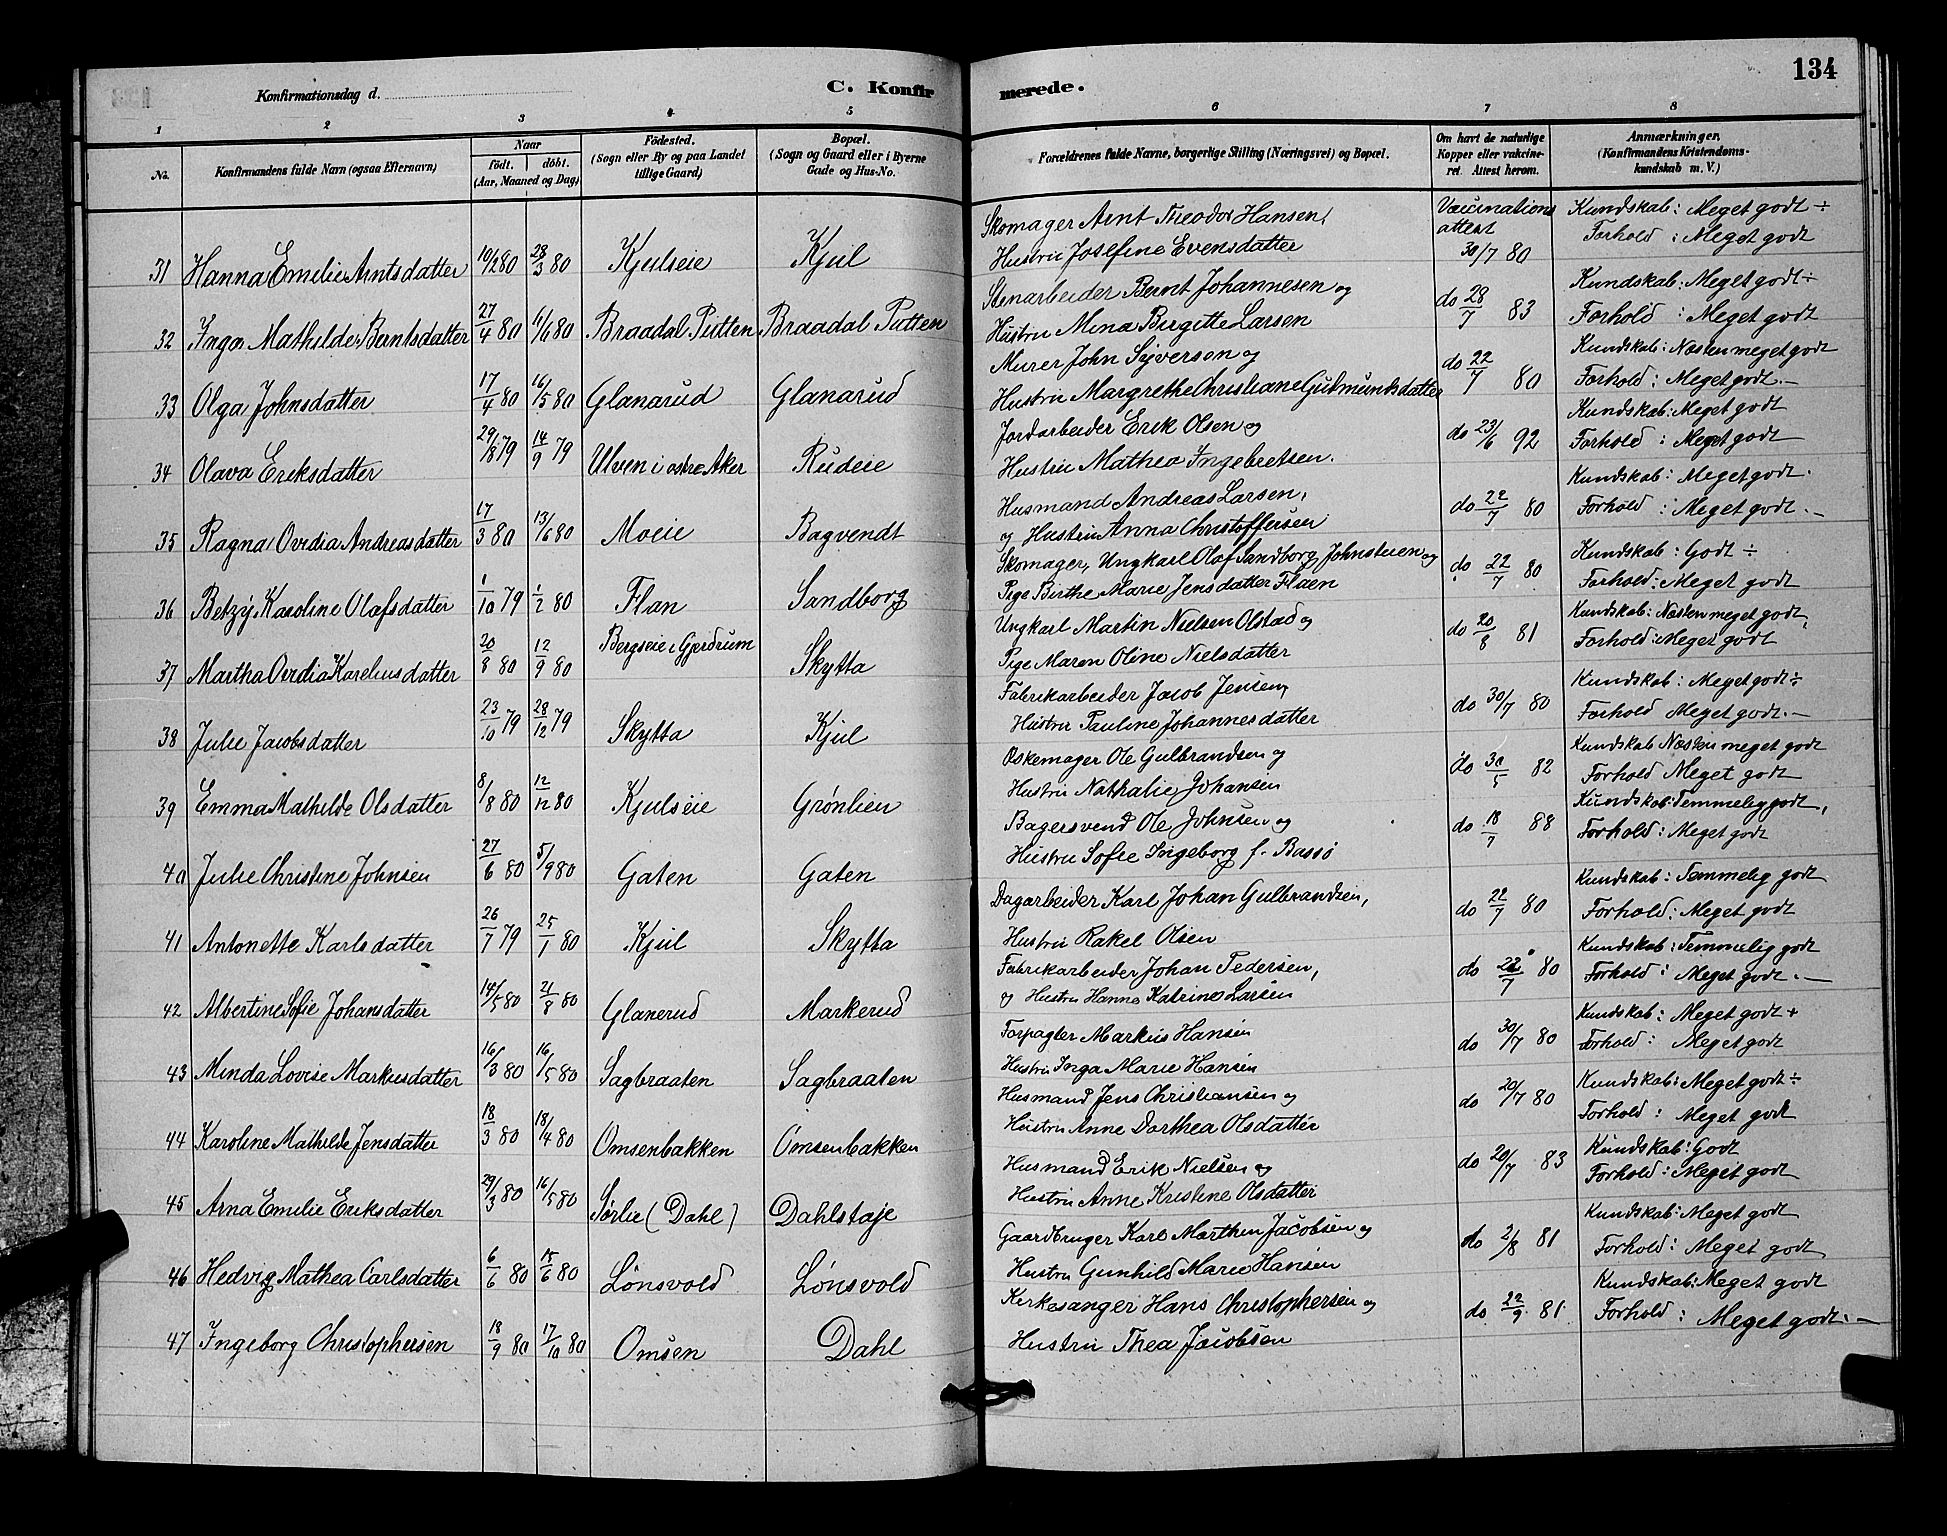 134
Konfirmationsdag d.
C. Konfirmerede.
1 2 3 4 5 6 7 8
No. Konfirmandens fulde Navn (ogsaa Efternavn) Naar født. døbt. (Aar, Maaned og Dag) Födested. (Sogn eller By og paa Landet tillige Gaard) Bopæl. (Sogn og Gaard eller i Byerne Gade og Hus-No. Forældrenes fulde Navne, borgerlige Stilling (Næringsvei) og Bopæl. Om havt de naturlige Kopper eller vakcineret. Attest herom. Anmærkninger. (Konfirmandens Kristendomskundskab m. V.)
Skomager Arnt Theodor Hansen, Vaccinations Kundskab: Meget godt ÷
31 Hanna Emilie Arntsdatter 10/2 80 28/3 80 Kjulseie Kjul Hustru Josefine Evensdatter attest 30/7 80 Forhold : Meget godt
Stenarbeider Bernt Johannesen og Kundskab: Meget godt ÷
32 Inga Mathilde Berntsdatter 27/4 80 6/6 80 Braadal Putten Braadal Putten Hustru Mina Birgitte Larsen do 28/7 83 Forhold : Meget godt
Murer John Syversen og Kundskab: Næsten meget godt
33 Olga Johnsdatter 17/4 80 16/5 80 Glanarud Glanarud Hustru Margrethe Christiane Gudmundsdatter do 22/7 80 Forhold : Meget godt. —
Jordarbeider Erik Olsen og Kundskab: Meget godt
34 Olava Eriksdatter 29/8 79 14/9 79 Ulven i østre Aker Rudeie Hustru Mathea Ingebretsen. do 23/6 92 Forhold : Meget godt
Husmand Andreas Larsen, Kundskab: Meget godt.
35 Ragna Ovidia Andreasdatter 17/3 80 13/6 80 Moeie Bagvendt og Hustru Anna Christoffersen do 22/7 80 Forhold : Meget godt. —
Skomager, Ungkarl Olaf Sandborg Johnstuen og Kundskab: Godt ÷
36 Betzy Karoline Olafsdatter 1/10 79 1/2 80 Flan Sandborg Pige Birthe Marie Jensdatter Flaen do 22/7 80 Forhold: Meget godt
Ungkarl Martin Nielsen Olstad og Kundskab: Næsten meget godt,
37 Martha Ovidia Kareliusdatter 20/8 80 12/9 80 Bergseie i Gjerdrum Skytta Pige Maren Oline Nielsdatter do 20/8 81 Forhold: Meget godt
Fabrikarbeider Jacob Jensen, Kundskab: Meget godt ÷
38 Julie Jacobsdatter 23/10 79 28/12 79 Skytta Kjul Hustru Pauline Johannesdatter do 30/7 80 Forhold Meget godt. —
Øskemager Ole Gulbrandsen og Kundskab Næsten meget godt
39 Emma Mathilde Olsdatter 8/8 80 12/12 80 Kjulseie Grønlien Hustru Nathalie Johansen do 30/5 82 Forhold Meget godt
Bagersvend Ole Johnsen og Kundskab: Temmelig godt,
40 Julie Christine Johnsen 27/6 80 5/9 80 Gaten Gaten Hustru Sofie Ingeborg f. Bassø do 18/7 88 Forhold: Meget godt
Dagarbeider Karl Johan Gulbrandsen, Kundskab: Temmelig godt
41 Antonette Karlsdatter 26/7 79 25/1 80 Kjul Skytta Hustru Rakel Olsen do 22/7 80 Forhold: Meget godt
Fabrikarbeider Johan Pedersen, Kundskab: Temmelig godt
42 Albertine Sofie Johansdatter 14/5 80 21/8 80 Glanerud Markerud og Hustru Hanna Katrine Larsen do 22/7 80 Forhold: Meget godt. —
Forpagter Markus Hansen Kundskab: Meget godt +
43 Minda Lovise Markusdatter 16/3 80 16/5 80 Sagbraaten Sagbraaten Hustru Inga Marie Hansen do 30/7 80 Forhold: Meget godt
Husmand Jens Christiansen og Kundskab: Meget godt ÷
44 Karoline Mathilde Jensdatter 18/3 80 18/4 80 Omsenbakken Omsenbakken Hustru Anne Dorthea Olsdatter do 20/7 80 Forhold: Meget godt
Husmand Erik Nielsen og Kundskab: Godt
45 Arna Emilie Eriksdatter 29/3 80 16/5 80 Sørlie (Dahl) Dahlstaje Hustru Anne Kristine Olsdatter do 20/7 83 Forhold: Meget godt
Gaardbruger Karl Marthin Jacobsen og Kundskab: Meget godt
46 Hedvig Mathea Carlsdatter 6/6 80 15/6 80 Lønsvold Lønsvold Hustru Gunhild Marie Hansen do 2/8 81 Forhold: Meget godt
Kirkesanger Hans Christophersen og Kundskab: Meget godt
47 Ingeborg Christophersen 18/9 80 17/10 80 Omsen Dahl Hustru Thea Jacobsen do 22/9 81 Forhold: Meget godt. —